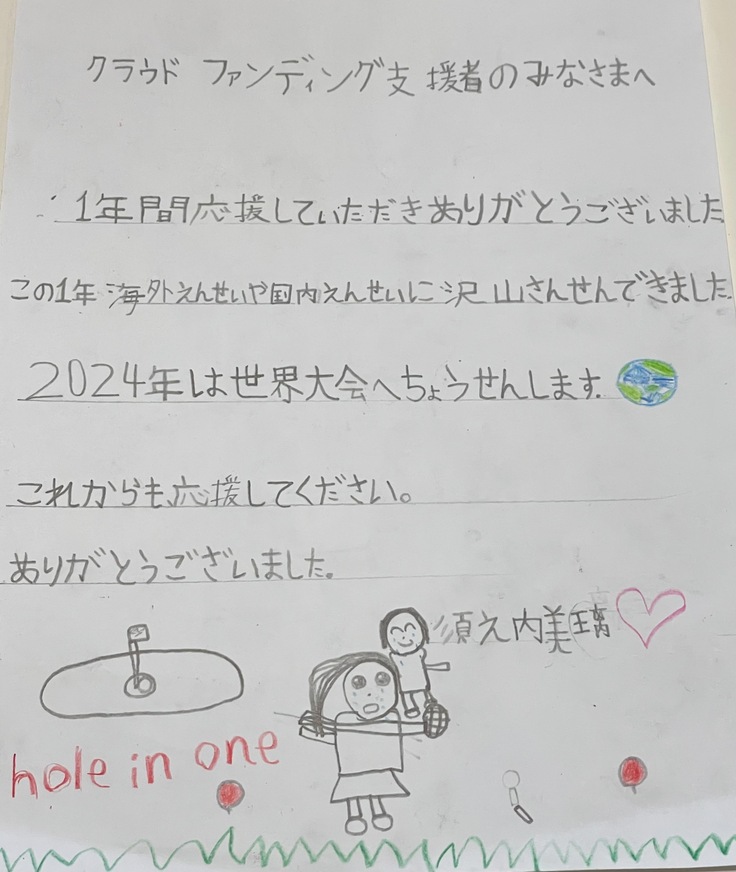 クラウド ファンディング支援者のみなさまへ
1年間応援していただきありがとうございました
この1年 海外えんせいや国内えんせいに沢山さんせんできました
2024年は世界大会へちょうせんします.
これからも応援してください。
ありがとうございました.
須之内美璃
hole in one